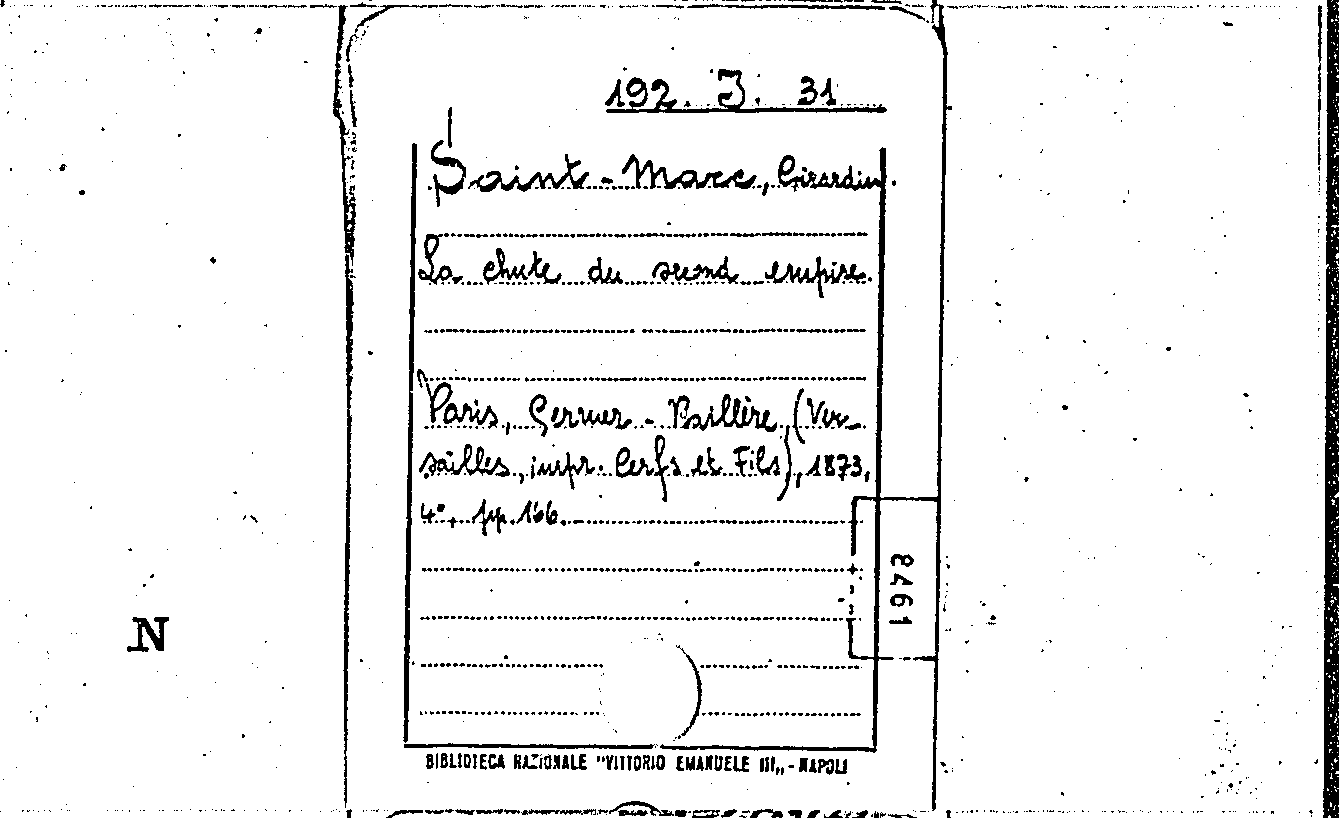 192. J. 31
Saint-Marc, Girardin.
La chute du second empire.
Paris, Germer-Baillère, (Ver-
sailles, impr. Cerfs et Fils), 1873,
4°, pp. 166.
1948
N
BIBLIOTECA NAZIONALE "VITTORIO EMANUELE III„ - NAPOLI